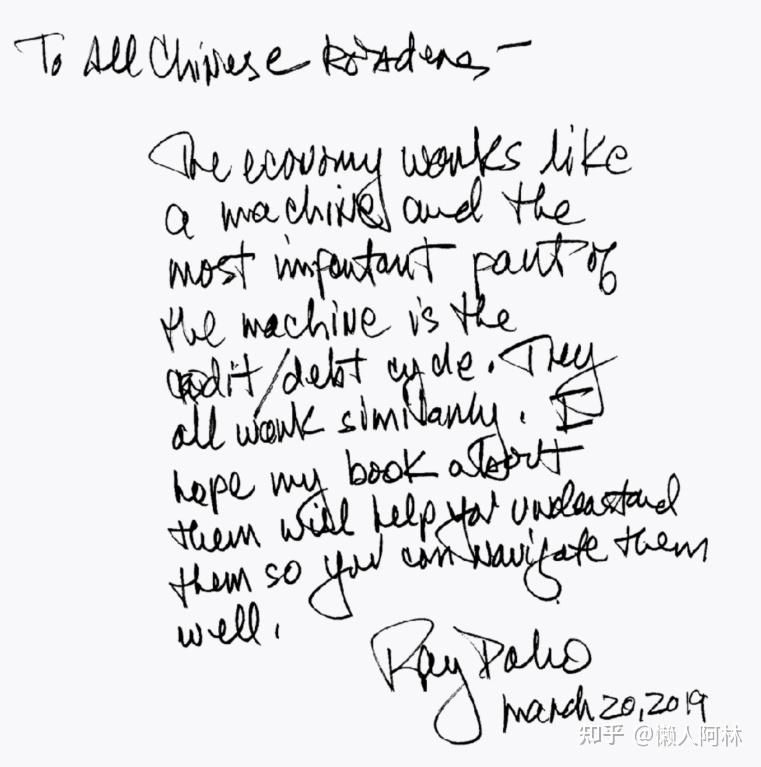 To All Chinese Readers —
The economy works like
a machine and the
most important part of
the machine is the
credit/debt cycle. They
all work similarly. I
hope my book about
them will help you understand
them so you can navigate them
well.
Ray Dalio
March 20, 2019
知乎 @懒人阿林